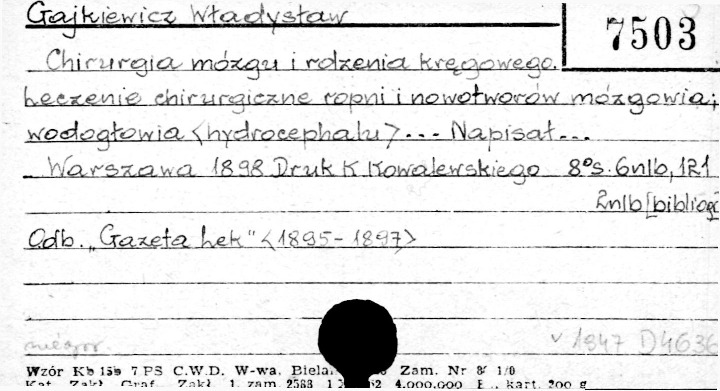 Gajkiewicz Władysław
7503
Chirurgia mózgu i rdzenia kręgowego.
Leczenie chirurgiczne ropni i nowotworów mózgowia;
wodogłowia <hydrocephalu> --- Napisał ---
Warszawa 1898 Druk K Kowalewskiego 8° s. 6nlb, 121
2nlb [bibliogr
Odb. „Gazeta Lek" <1895-1897>
v 1947 D4636
Wzór Kb 15b 7 PS C.W.D. W-wa, Zam. Nr
Kat. Zakł. Graf. Zakł. 1. zam. 2588 4.000.000 kart. 200 g